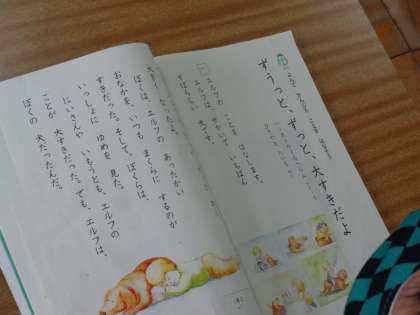 ずうっと、ずっと、大すきだよ
エルフの ことを はなします。
エルフは、せかいで いちばん
すばらしい 犬です。
大きく なったよ。
ぼくは、エルフの あったかい
おなかを、いつも まくらに するのが
すきだった。そして、ぼくらは、
いっしょに ゆめを 見た。
にいさんや いもうとも、エルフの
ことが 大すきだった。でも、エルフは、
ぼくの 犬だったんだ。